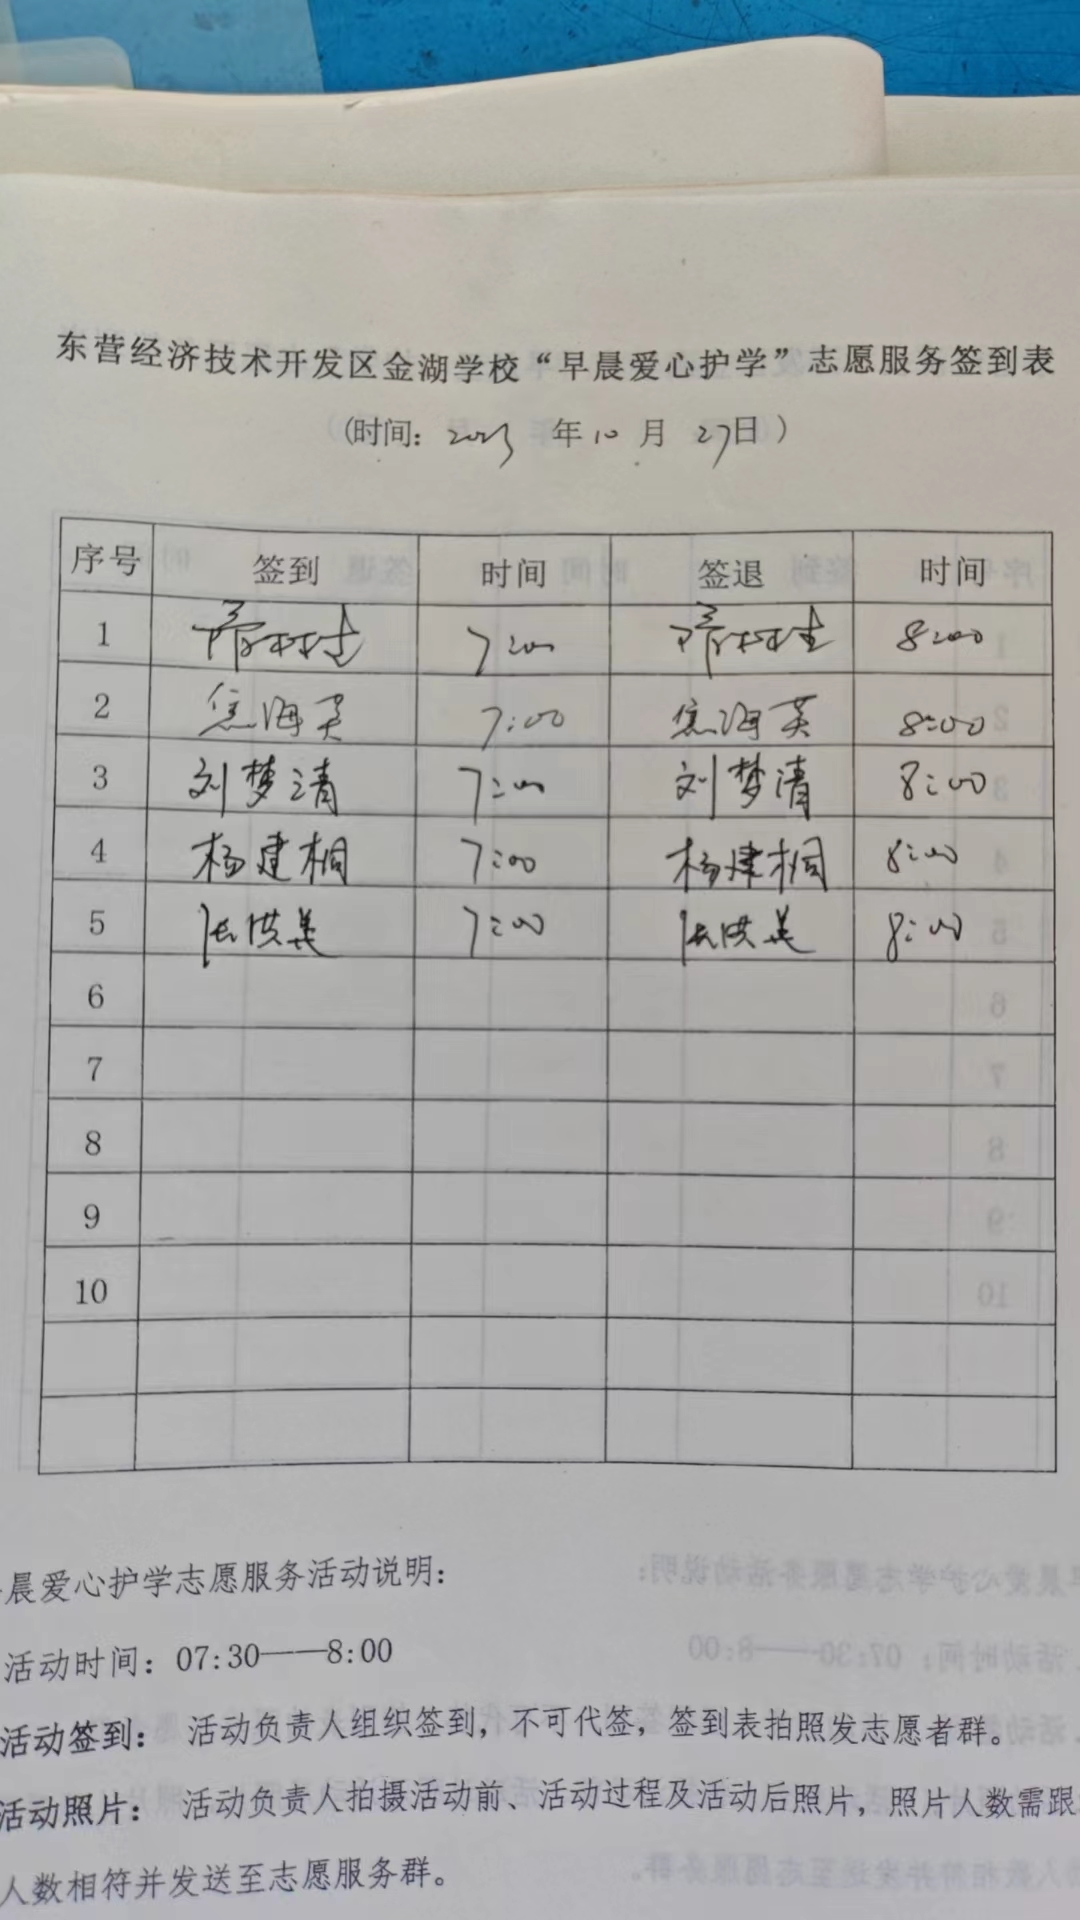 东营经济技术开发区金湖学校“早晨爱心护学”志愿服务签到表
(时间: 2023 年 10 月 27日)
序号 签到 时间 签退 时间
1 7:00 8:00
2 焦海英 7:00 焦海英 8:00
3 刘梦清 7:00 刘梦清 8:00
4 杨建桐 7:00 杨建桐 8:00
5 张洪美 7:00 张洪美 8:00
6
7
8
9
10
晨爱心护学志愿服务活动说明:
活动时间: 07:30——8:00
活动签到: 活动负责人组织签到, 不可代签, 签到表拍照发志愿者群。
活动照片: 活动负责人拍摄活动前、活动过程及活动后照片, 照片人数需跟
人数相符并发送至志愿服务群。